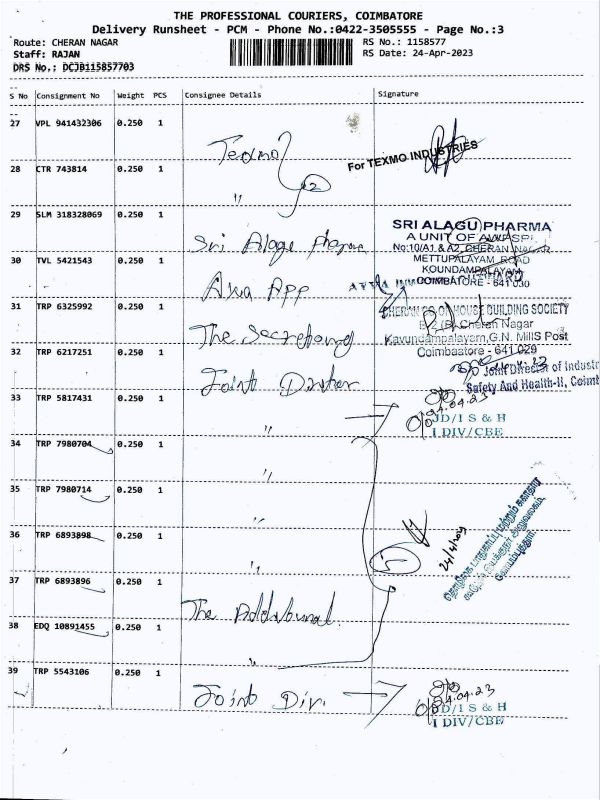 THE PROFESSIONAL COURIERS, COIMBATORE
Delivery Runsheet - PCM - Phone No.:0422-3505555 - Page No.:3
Route: CHERAN NAGAR
RS No.: 1158577
Staff: RAJAN
RS Date: 24-Apr-2023
DRS No.: DCJB115857703
S No Consignment No Weight PCS Consignee Details Signature
27 VPL 941432306 0.250 1 Texmo
For TEXMO INDUSTRIES
28 CTR 743814 0.250 1 "
29 SLM 318328069 0.250 1 Sri Alagu Pharma
SRI ALAGU PHARMA
A UNIT OF
No:10/A1 & A2, CHERAN NAGAR
METTUPALAYAM ROAD
KOUNDAMPALAYAM
COIMBATORE - 641 030
30 TVL 5421543 0.250 1 App
31 TRP 6325992 0.250 1 The Secretary
CHERAN CO-OP HOUSE BUILDING SOCIETY
Cheran Nagar
Kavundampalayam, G.N. Mills Post
Coimbaatore - 641 029
32 TRP 6217251 0.250 1 Joint
Joint Director of Industr
Safety And Health-II, Coimb
33 TRP 5817431 0.250 1 "
24.04.23
JD/I S & H
I DIV/CBE
34 TRP 7980704 0.250 1 "
35 TRP 7980714 0.250 1 "
36 TRP 6893898 0.250 1 "
24/4/2023
37 TRP 6893896 0.250 1 The
38 EDQ 10891455 0.250 1 "
39 TRP 5543106 0.250 1 Joint Dir.
24.04.23
JD/I S & H
I DIV/CBE